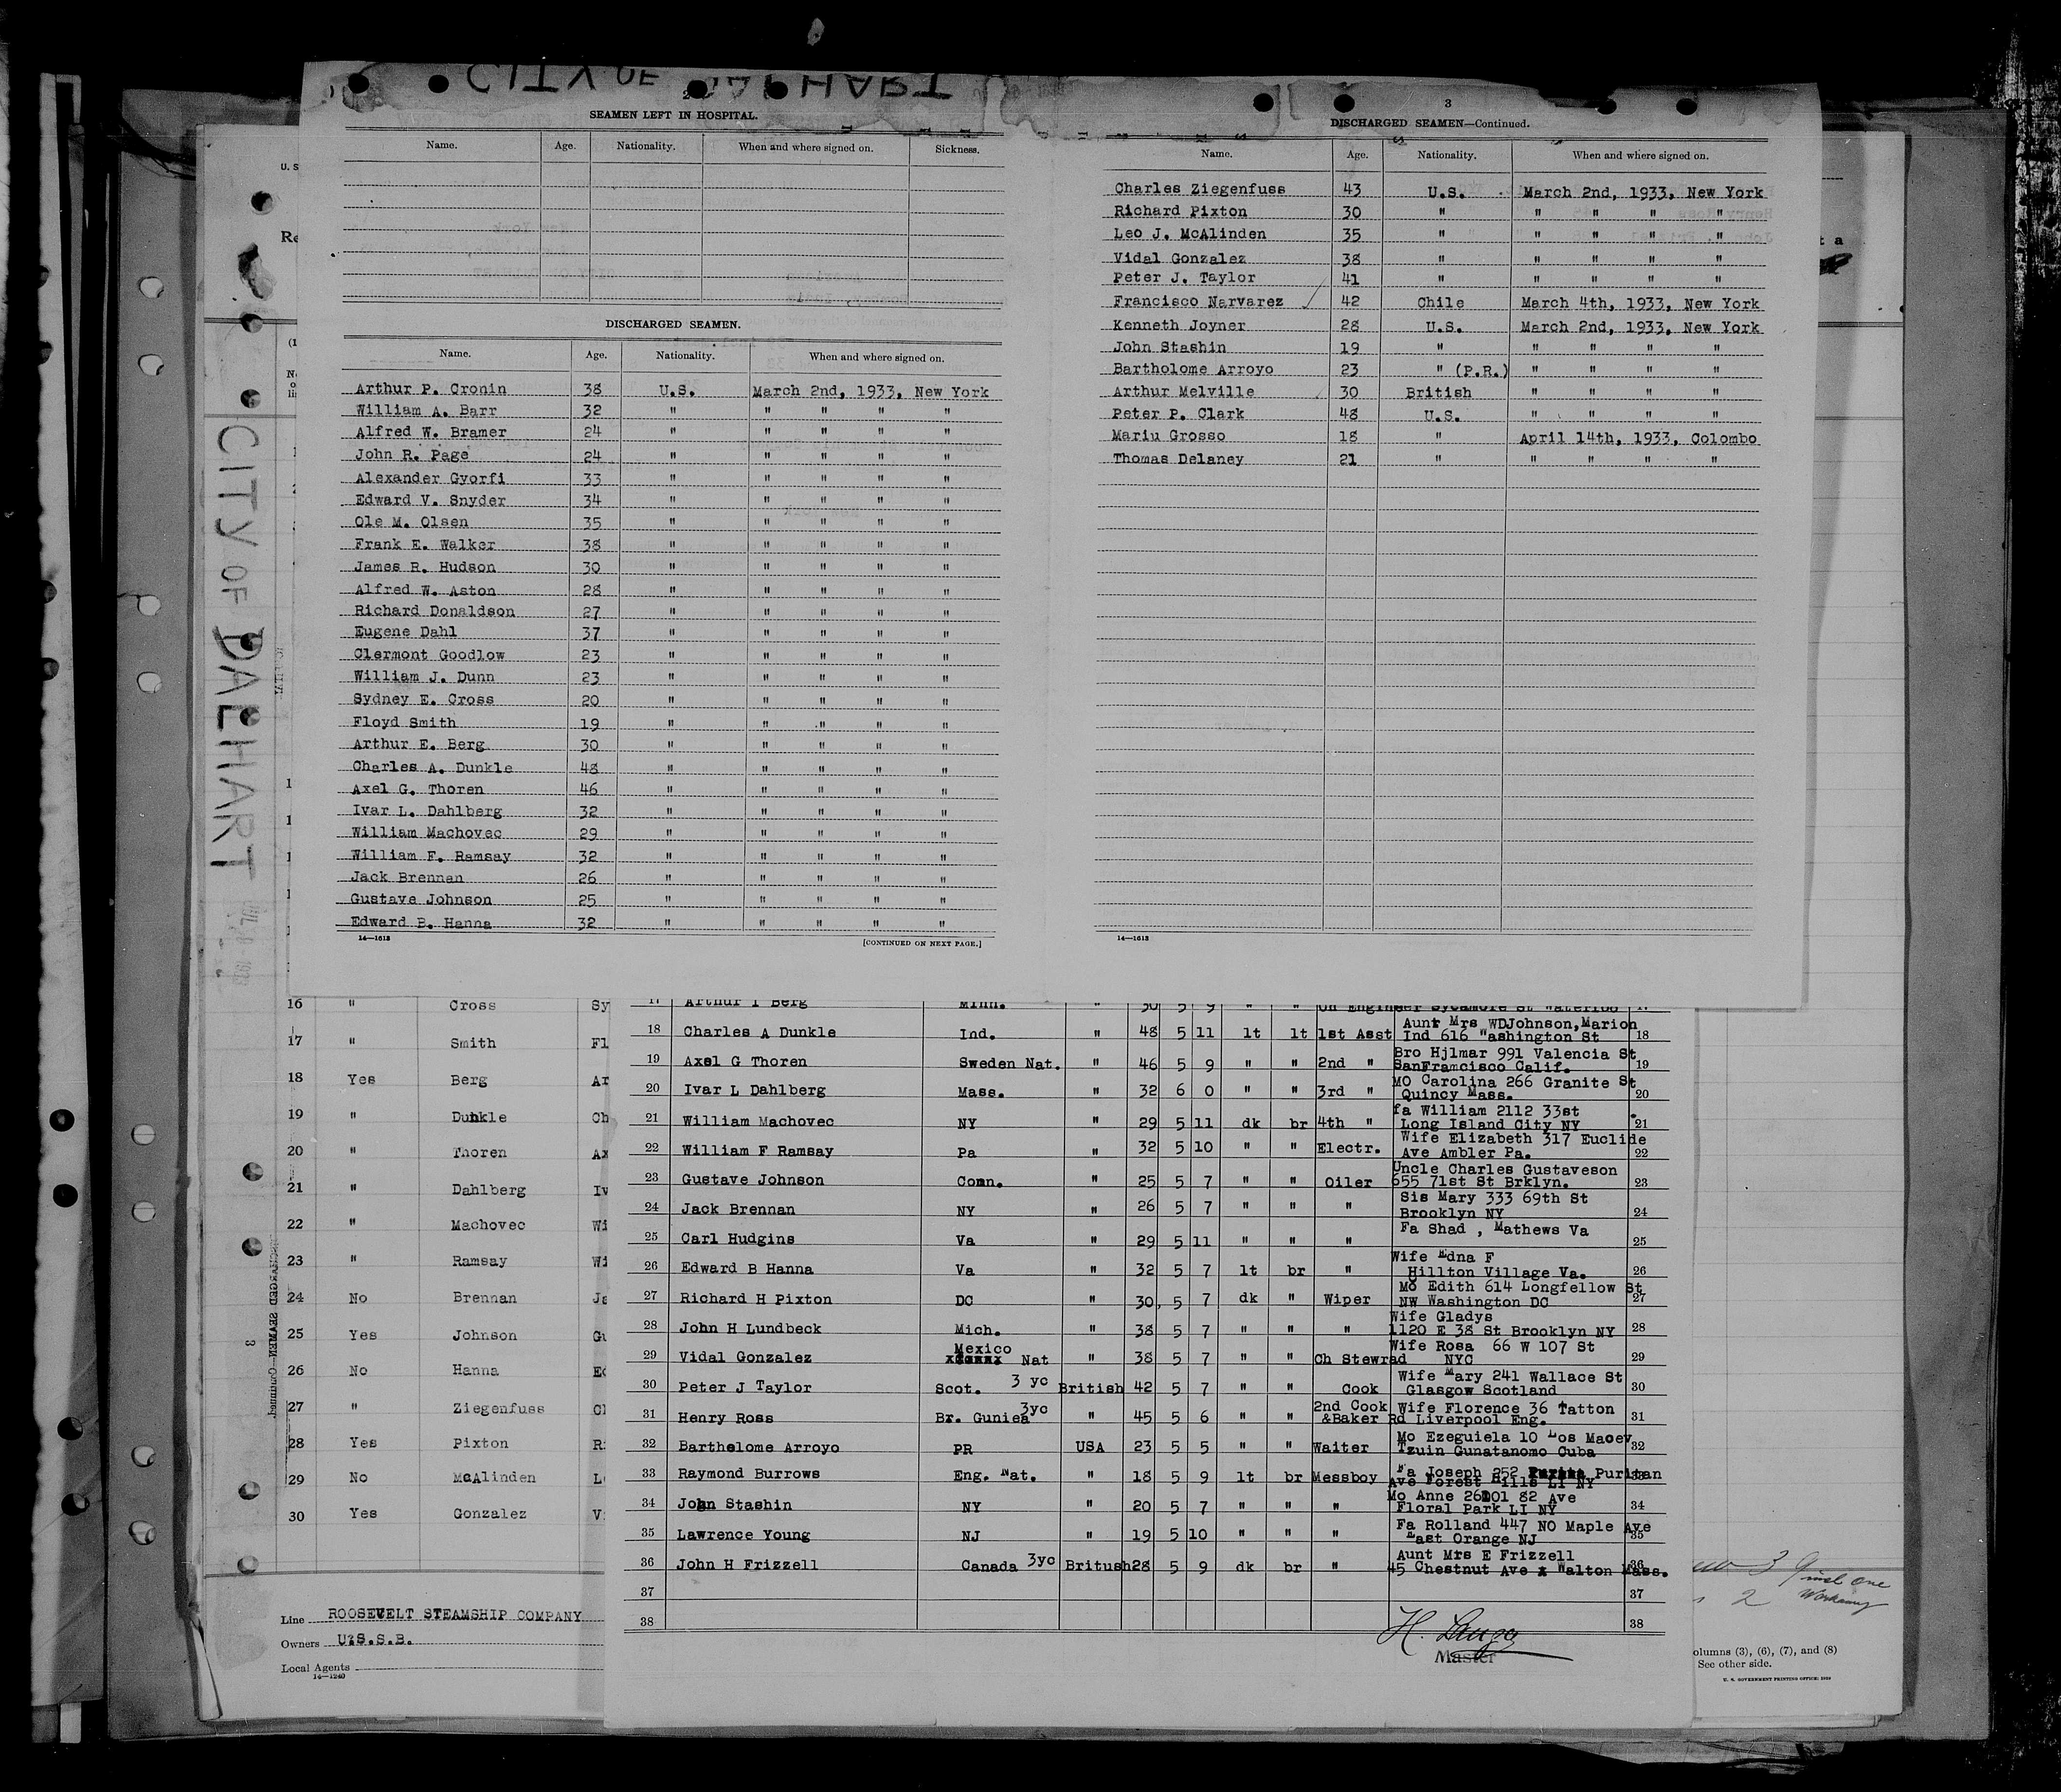 CITY OF DALHART
SEAMEN LEFT IN HOSPITAL.
Name. Age. Nationality. When and where signed on. Sickness.
DISCHARGED SEAMEN.
Name. Age. Nationality. When and where signed on.
Arthur P. Cronin 38 U.S. March 2nd, 1933, New York
William A. Barr 32 " " " " "
Alfred W. Bramer 24 " " " " "
John R. Page 24 " " " " "
Alexander Gyorfi 33 " " " " "
Edward V. Snyder 34 " " " " "
Ole M. Olsen 35 " " " " "
Frank E. Walker 38 " " " " "
James R. Hudson 30 " " " " "
Alfred W. Aston 28 " " " " "
Richard Donaldson 27 " " " " "
Eugene Dahl 37 " " " " "
Clermont Goodlow 23 " " " " "
William J. Dunn 23 " " " " "
Sydney E. Cross 20 " " " " "
Floyd Smith 19 " " " " "
Arthur E. Berg 30 " " " " "
Charles A. Dunkle 48 " " " " "
Axel G. Thoren 46 " " " " "
Ivar L. Dahlberg 32 " " " " "
William Machovec 29 " " " " "
William F. Ramsay 32 " " " " "
Jack Brennan 26 " " " " "
Gustave Johnson 25 " " " " "
Edward B. Hanna 32 " " " " "
14—1613 [CONTINUED ON NEXT PAGE.]
3
DISCHARGED SEAMEN—Continued.
Name. Age. Nationality. When and where signed on.
Charles Ziegenfuss 43 U.S. March 2nd, 1933, New York
Richard Pixton 30 " " " " "
Leo J. McAlinden 35 " " " " "
Vidal Gonzalez 38 " " " " "
Peter J. Taylor 41 " " " " "
Francisco Narvarez 42 Chile March 4th, 1933, New York
Kenneth Joyner 28 U.S. March 2nd, 1933, New York
John Stashin 19 " " " " "
Bartholome Arroyo 23 " (P.R.) " " " "
Arthur Melville 30 British " " " "
Peter P. Clark 48 U.S. " " " "
Mariu Grosso 18 " April 14th, 1933, Colombo
Thomas Delaney 21 " " " " "
14—1613
CITY OF DALHART
16 " Cross Sy
17 " Smith Fl
18 Yes Berg Ar
19 " Dunkle Ch
20 " Thoren Ax
21 " Dahlberg Iv
22 " Machovec Wi
23 " Ramsay Wi
24 No Brennan Ja
25 Yes Johnson Gu
26 No Hanna Ed
27 " Ziegenfuss Cl
28 Yes Pixton R
29 No McAlinden L
30 Yes Gonzalez V
Line ROOSEVELT STEAMSHIP COMPANY
Owners U.S.S.B.
Local Agents
14—1240
18 Charles A Dunkle Ind. " 48 5 11 lt lt 1st Asst Aunt Mrs WDJohnson,Marion
Ind 616 Washington St 18
19 Axel G Thoren Sweden Nat. " 46 5 9 " " 2nd " Bro Hjlmar 991 Valencia St
SanFramcisco Calif. 19
20 Ivar L Dahlberg Mass. " 32 6 0 " " 3rd " MO Carolina 266 Granite St
Quincy Mass. 20
21 William Machovec NY " 29 5 11 dk br 4th " fa William 2112 33st
Long Island City NY 21
22 William F Ramsay Pa " 32 5 10 " " Electr. Wife Elizabeth 317 Euclide
Ave Ambler Pa. 22
23 Gustave Johnson Conn. " 25 5 7 " " Oiler Uncle Charles Gustaveson
655 71st St Brklyn. 23
24 Jack Brennan NY " 26 5 7 " " " Sis Mary 333 69th St
Brooklyn NY 24
25 Carl Hudgins Va " 29 5 11 " " " Fa Shad , Mathews Va 25
26 Edward B Hanna Va " 32 5 7 lt br " Wife Edna F
Hillton Village Va. 26
27 Richard H Pixton DC " 30 5 7 dk " Wiper Mo Edith 614 Longfellow St
NW Washington DC 27
28 John H Lundbeck Mich. " 38 5 7 " " " Wife Gladys
1120 E 38 St Brooklyn NY 28
29 Vidal Gonzalez Mexico Nat " 38 5 7 " " Ch Stewrad Wife Rosa 66 W 107 St
NYC 29
30 Peter J Taylor Scot. 3 yc British 42 5 7 " " Cook Wife Mary 241 Wallace St
Glasgow Scotland 30
31 Henry Ross Br. Guniea 3yc " 45 5 6 " " 2nd Cook &Baker Wife Florence 36 Tatton
Rd Liverpool Eng. 31
32 Barthelome Arroyo PR USA 23 5 5 " " Waiter Mo Ezeguiela 10 Los Maoev
Tzuin Gunatanomo Cuba 32
33 Raymond Burrows Eng. Nat. " 18 5 9 lt br Messboy Fa Joseph 252 Puritan
Ave Forest Hills LI NY 33
34 John Stashin NY " 20 5 7 " " " Mo Anne 26101 82 Ave
Floral Park LI NY 34
35 Lawrence Young NJ " 19 5 10 " " " Fa Rolland 447 NO Maple Ave
East Orange NJ 35
36 John H Frizzell Canada 3yc Britush 28 5 9 dk br " Aunt Mrs E Frizzell
45 Chestnut Ave x Walton Mass. 36
37 37
38 38
Master
olumns (3), (6), (7), and (8)
See other side.
U. S. GOVERNMENT PRINTING OFFICE